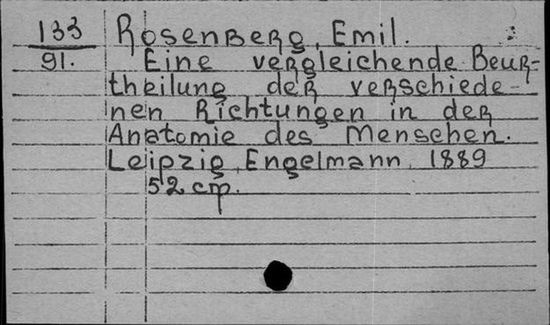 133 Rosenberg, Emil.
91. Eine vergleichende Beur-
theilung der verschiede-
nen Richtungen in der
Anatomie des Menschen.
Leipzig, Engelmann, 1889
52 стр.